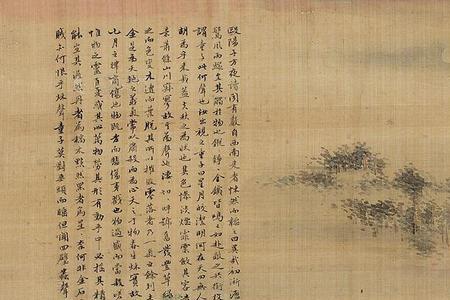 歐陽子方夜讀書聞有聲自西南來者悚然而聽之曰異哉初淅瀝
驚風雨驟至其觸於物也鏦鏦錚錚金鐵皆鳴又如赴敵之兵銜枚
謂童子此何聲也汝出視之童子曰星月皎潔明河在天四無人
胡為乎來哉蓋夫秋之為狀也其色慘淡煙霏雲斂其容清
蕭條山川寂寥故其為聲也淒淒切切呼號奮發豐草綠
之而色變木遭之而葉脫其所以摧敗零落者乃一氣之餘烈夫
金是為天地之義氣常以肅殺而為心天之於物春生秋實故
七月之律商傷也物既老而悲傷夷戮也物過盛而當殺嗟
惟物之靈百憂感其心萬物勞其形有動乎中必搖其精
能宜其渥然丹者為槁木黟然黑者為星星奈何非金石
賊亦何恨乎秋聲童子莫對垂頭而睡但聞四壁蟲聲